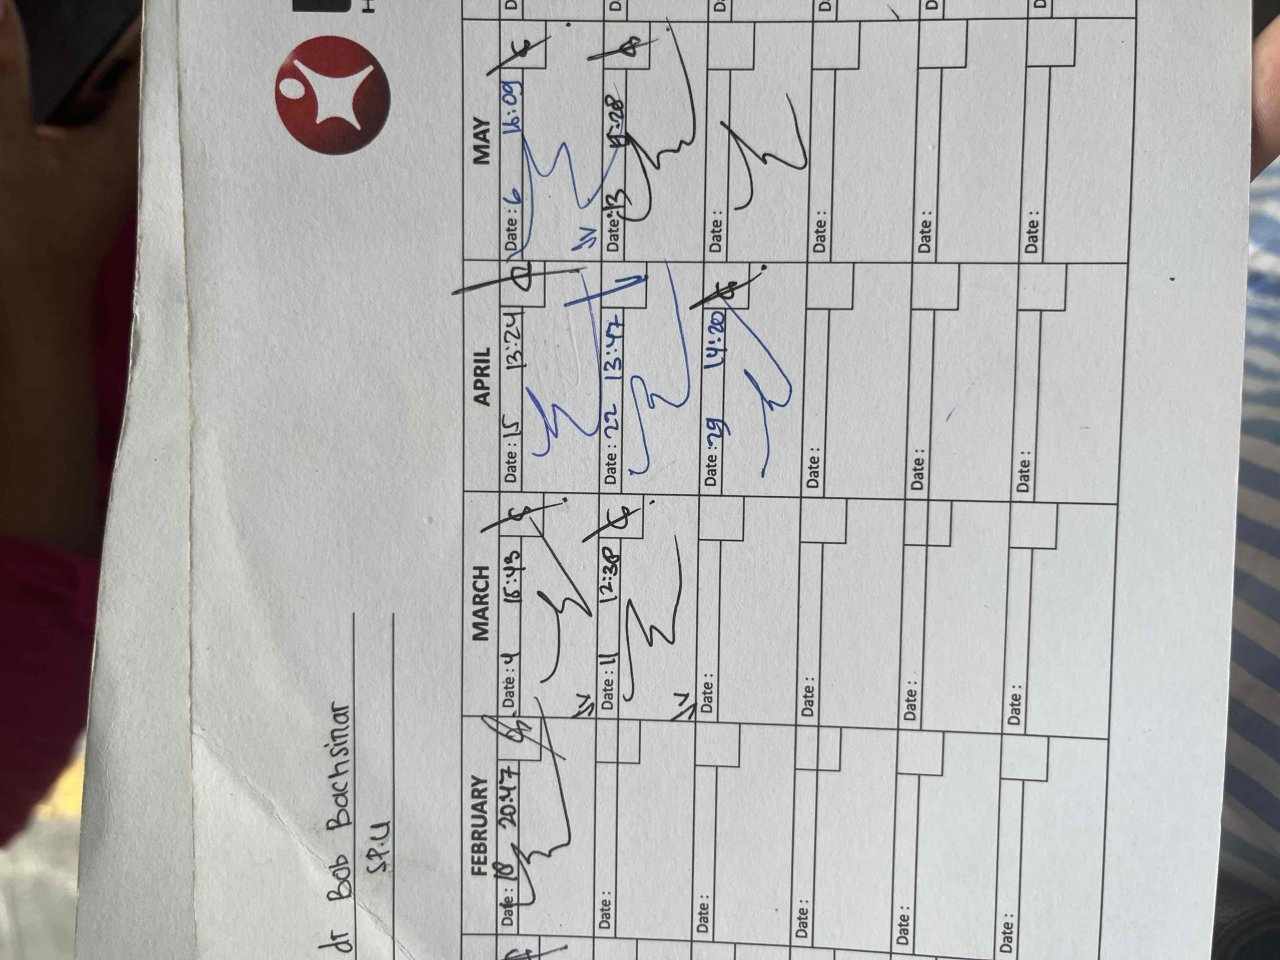 dr Bob Bachsinar
S.P.U
FEBRUARY MARCH APRIL MAY
Date : 18 20:47 Date : 4 Date : 15 13:24 Date : 6 16:09
Date : Date : 11 12:38 Date : 22 13:47 Date : 13
Date : Date : Date : 29 14:20 Date :
Date : Date : Date : Date :
Date : Date : Date : Date :
Date : Date : Date : Date :